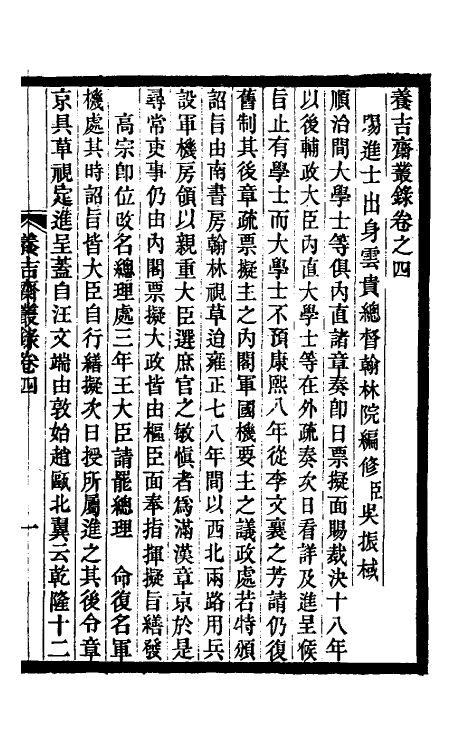 養吉齋叢錄卷之四
賜進士出身雲貴總督翰林院編修臣吳振棫
順治間大學士等俱內直諸章奏卽日票擬面賜裁決十八年
以後輔政大臣內直大學士等在外疏奏次日看詳及進呈候
旨止有學士而大學士不預康熙八年從李文襄之芳請仍復
舊制其後章疏票擬主之內閣軍國機要主之議政處若特頒
詔旨由南書房翰林視草迨雍正七八年間以西北兩路用兵
設軍機房領以親重大臣選庶官之敏慎者爲滿漢章京於是
尋常吏事仍由內閣票擬大政皆由樞臣面奉指揮擬旨繕發
高宗卽位改名總理處三年王大臣請罷總理 命復名軍
機處其時詔旨皆大臣自行繕擬次日授所屬進之其後令章
京具草視定進呈蓋自汪文端由敦始趙甌北翼云乾隆十二
養吉齋叢錄卷四
一